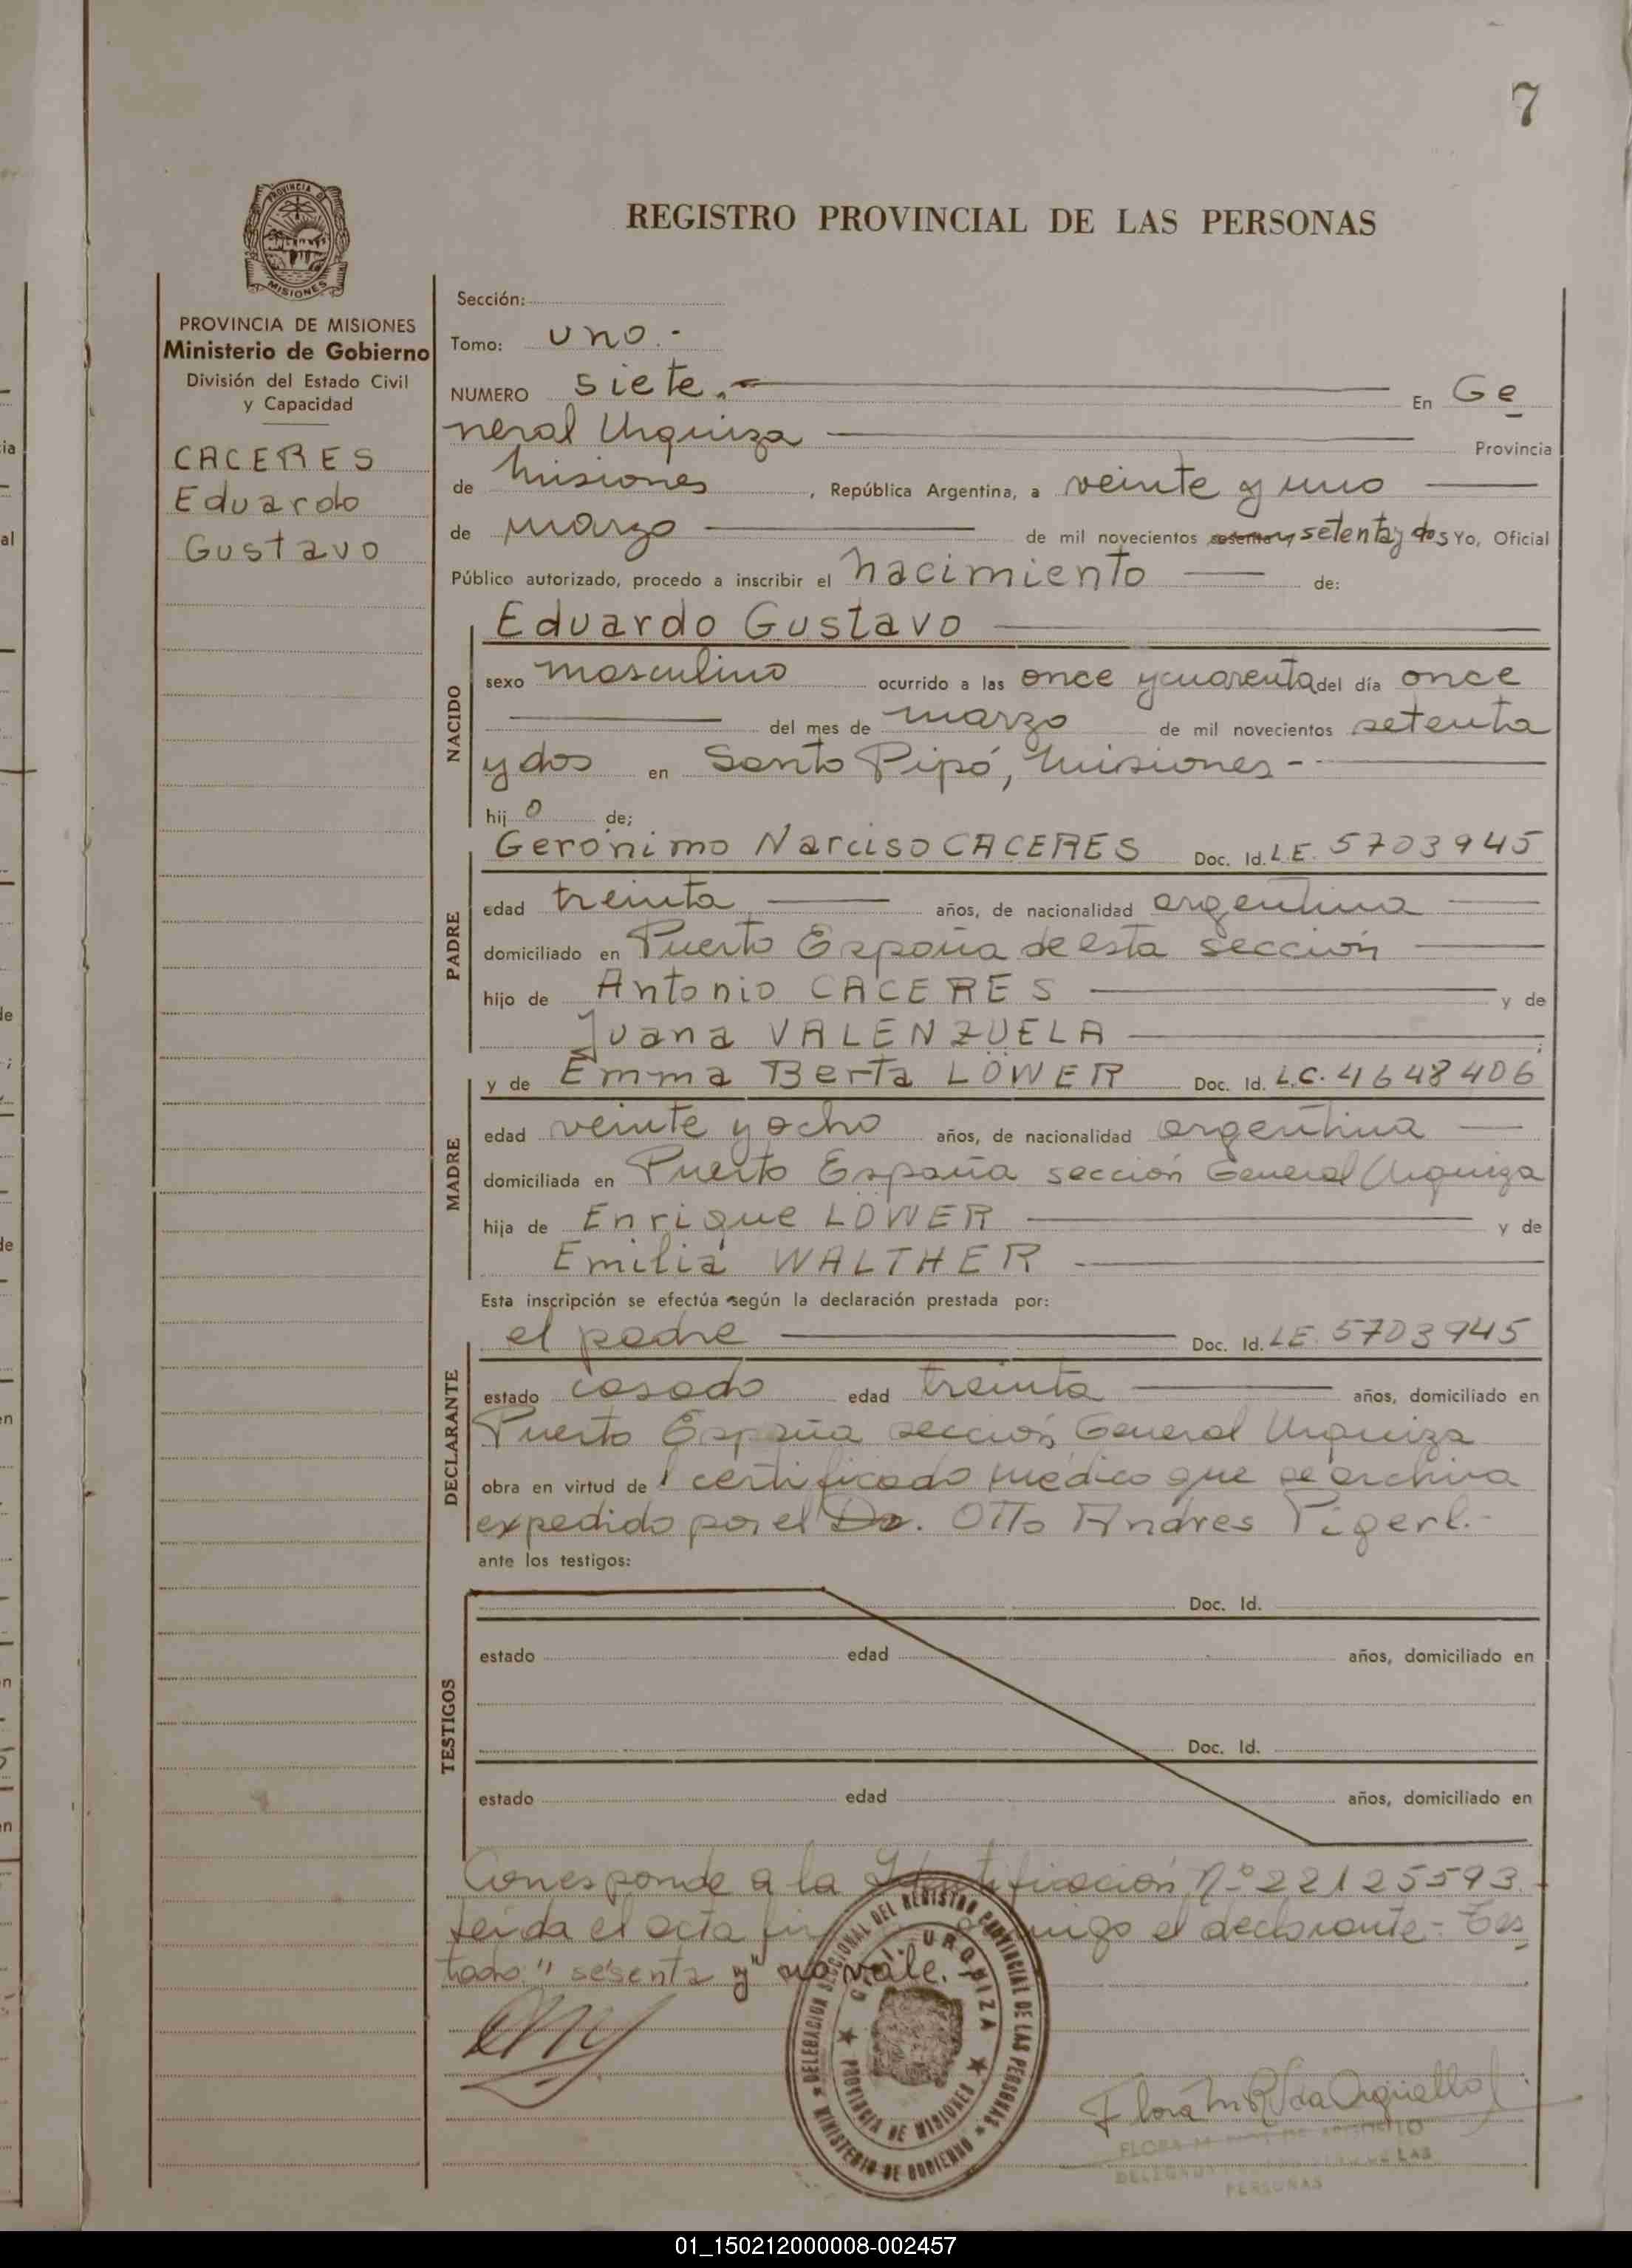 7
PROVINCIA DE
MISIONES
REGISTRO PROVINCIAL DE LAS PERSONAS
PROVINCIA DE MISIONES
Ministerio de Gobierno
División del Estado Civil
y Capacidad
CACERES
Eduardo
Gustavo
Sección:
Tomo: uno.-
NUMERO siete. En Ge
neral Urquiza Provincia
de Misiones, República Argentina, a veinte y uno
de marzo de mil novecientos sesenta y setenta y dos Yo, Oficial
Público autorizado, procedo a inscribir el nacimiento de:
NACIDO
Eduardo Gustavo
sexo masculino ocurrido a las once y cuarenta del día once
del mes de marzo de mil novecientos setenta
y dos en Santo Pipó, Misiones -
hijo de;
PADRE
Gerónimo Narciso CACERES Doc. Id. L.E. 5703945
edad treinta años, de nacionalidad argentina
domiciliado en Puerto España de esta sección
hijo de Antonio CACERES y de
Juana VALENZUELA ;
MADRE
y de Emma Berta LÖWER Doc. Id. L.C. 4648406
edad veinte y ocho años, de nacionalidad argentina
domiciliada en Puerto España sección General Urquiza
hija de Enrique LÖWER y de
Emilia WALTHER
Esta inscripción se efectúa según la declaración prestada por:
DECLARANTE
el padre Doc. Id. LE. 5703945
estado casado edad treinta años, domiciliado en
Puerto España sección General Urquiza
obra en virtud del certificado médico que se archiva
expedido por el Dr. Otto Andres Pigerl.-
ante los testigos:
TESTIGOS
Doc. Id.
estado edad años, domiciliado en
Doc. Id.
estado edad años, domiciliado en
Corresponde a la Identificación Nº 22125593.-
Leída el acta migo el declarante - Tes
tado: "sesenta y" no vale.-
DELEGACION SECCIONAL DEL REGISTRO PROVINCIAL DE LAS PERSONAS
GRAL. URQUIZA
PROVINCIA DE MISIONES
MINISTERIO DE GOBIERNO
Flora M R Vda Argüello
FLORA M
LAS
PERSONAS
01_150212000008-002457